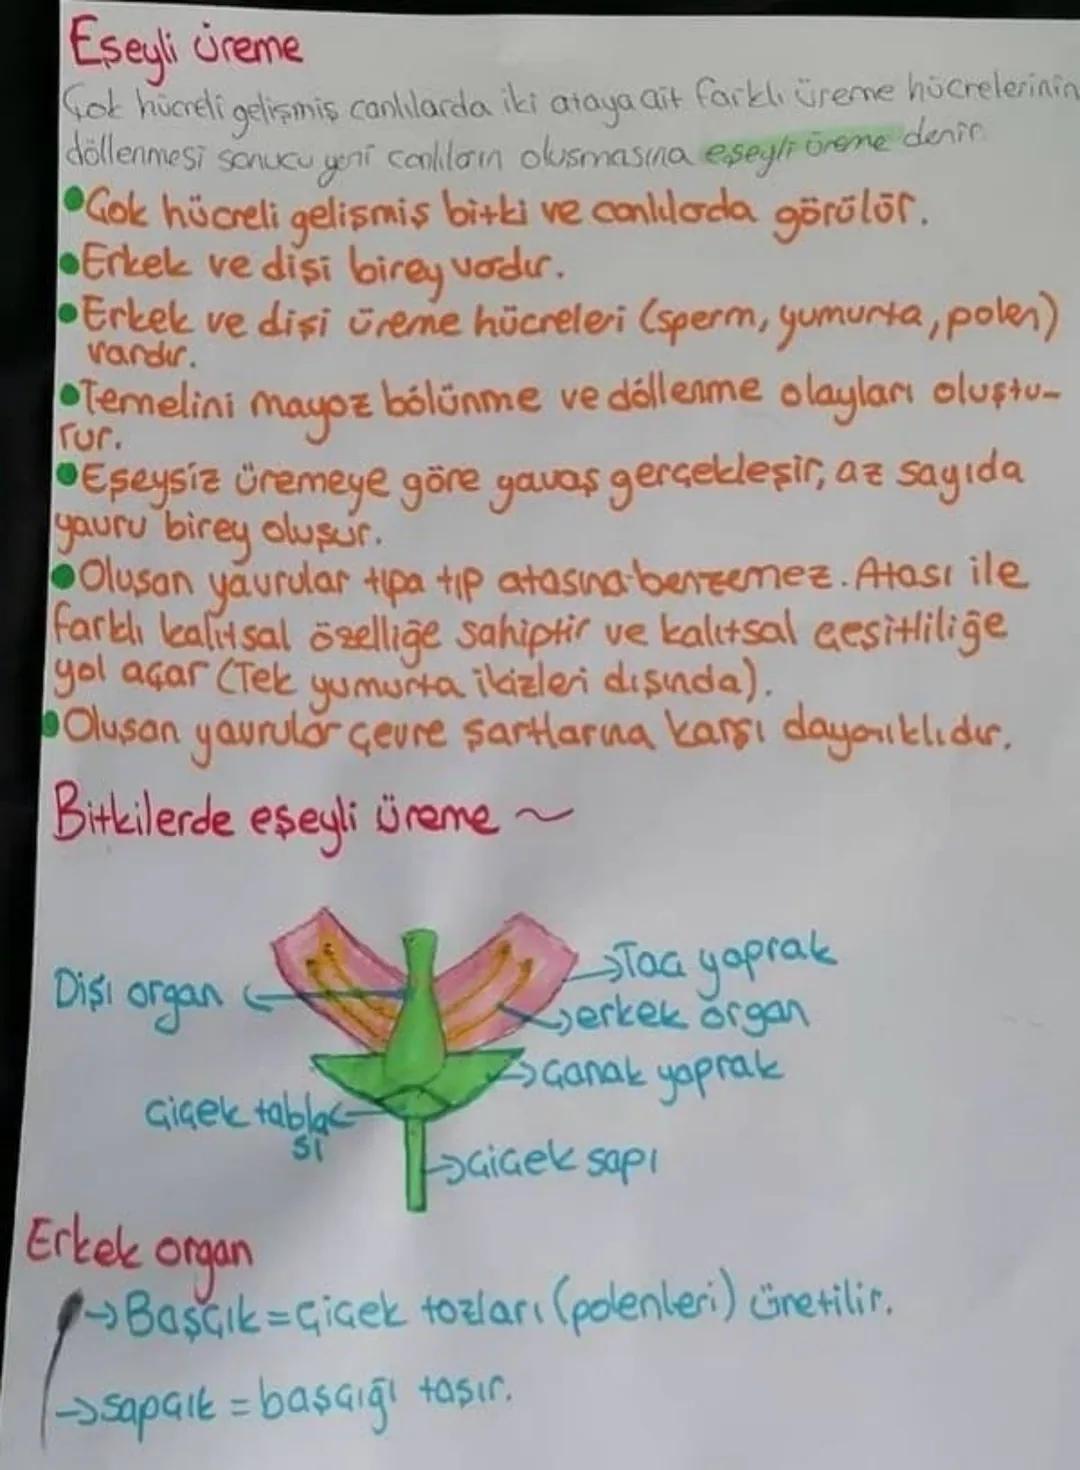 Eşeyli üreme
Çok hücreli gelişmiş canlılarda iki ataya ait farklı üreme hücrelerinin
döllenmesi sonucu yeni canlıların oluşmasına eşeyli üreme denir.
Çok hücreli gelişmiş bitki ve canlılarda görülür.
Erkek ve dişi birey vardır.
Erkek ve dişi üreme hücreleri (sperm, yumurta, polen)
vardır.
Temelini mayoz bölünme ve döllenme olayları oluştu-
rur.
Eşeysiz üremeye göre yavaş gerçekleşir, az sayıda
yavru birey oluşur.
Oluşan yavrular tıpa tıp atasına benzemez. Atası ile
farklı kalıtsal özelliğe sahiptir ve kalıtsal çeşitliliğe
yol açar (Tek yumurta ikizleri dışında).
Oluşan yavrular çevre şartlarına karşı dayanıklıdır.
Bitkilerde eşeyli üreme ~
Dişi organ
Taç yaprak
erkek organ
Çanak yaprak
Çiçek tabla
sı
Çiçek sapı
Erkek organ
→Başçık=Çiçek tozları (polenleri) üretilir.
→sapçık = başçığı taşır.